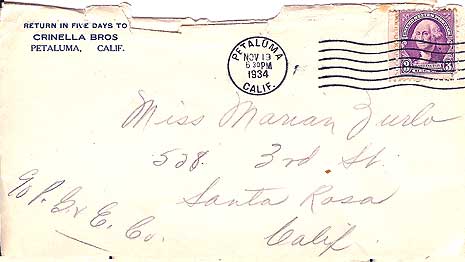 RETURN IN FIVE DAYS TO
CRINELLA BROS
PETALUMA, CALIF.
PETALUMA
NOV 19
6 30PM
1934
CALIF.
3 3
Miss Marian Zurlo
528 3rd St.
Santa Rosa
Calif
c/o P. G. & E. Co.